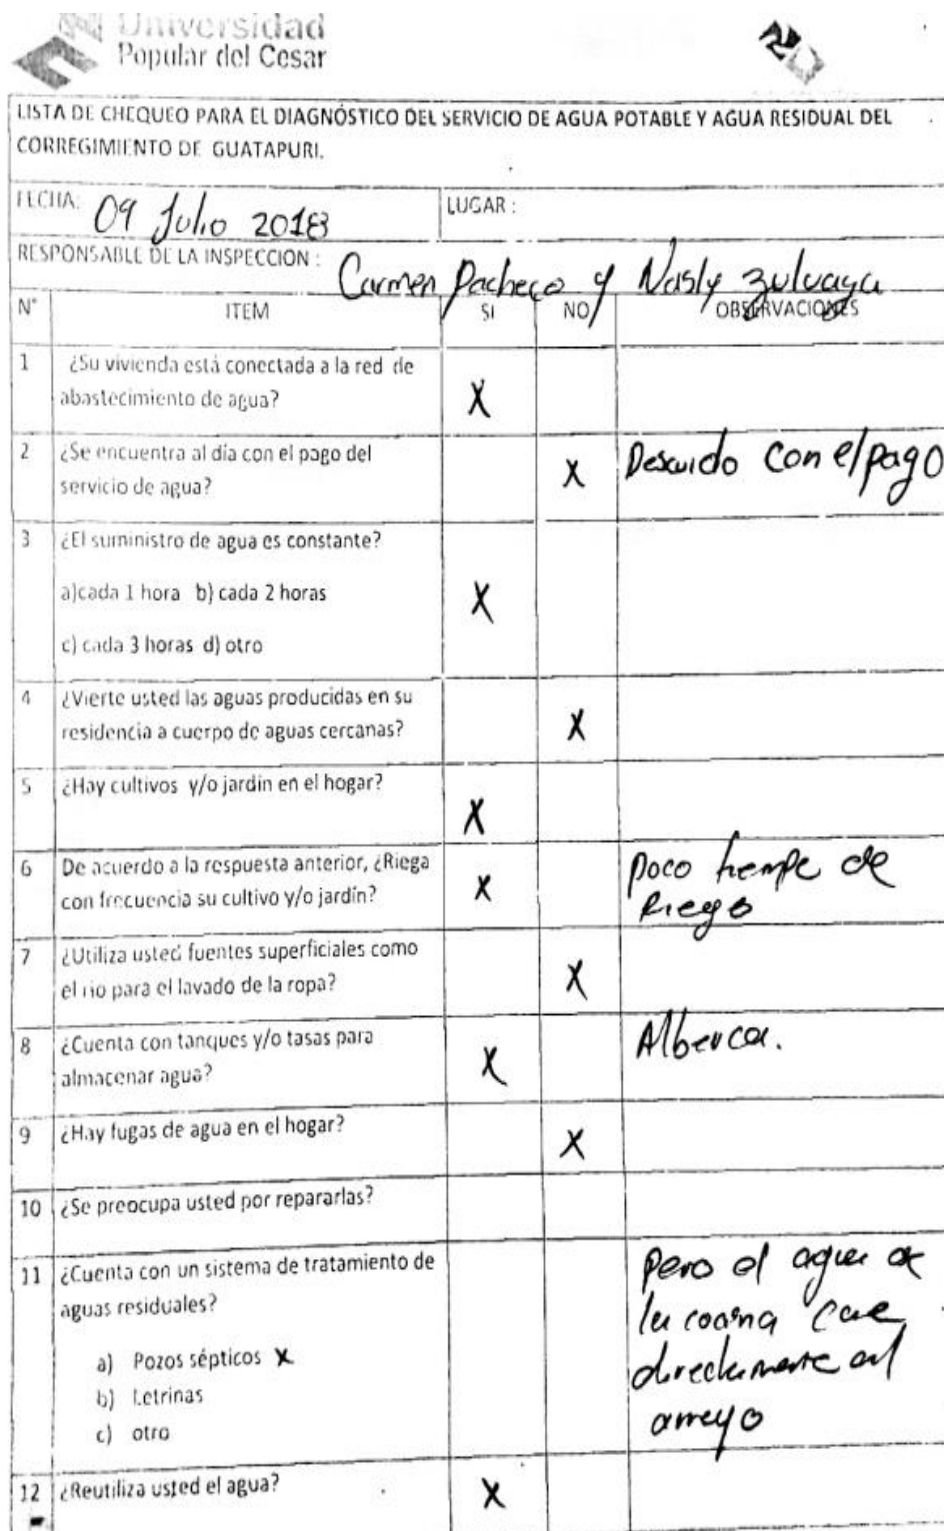 Universidad
Popular del Cesar
LISTA DE CHEQUEO PARA EL DIAGNÓSTICO DEL SERVICIO DE AGUA POTABLE Y AGUA RESIDUAL DEL
CORREGIMIENTO DE GUATAPURI.
FECHA: 09 Julio 2018 LUGAR :
RESPONSABLE DE LA INSPECCION : Carmen Pacheco y Nasly Zuluaga
N° ITEM SI NO OBSERVACIONES
1 ¿Su vivienda está conectada a la red de
abastecimiento de agua? X
2 ¿Se encuentra al día con el pago del
servicio de agua? X Descuido con el pago
3 ¿El suministro de agua es constante?
a)cada 1 hora b) cada 2 horas X
c) cada 3 horas d) otro
4 ¿Vierte usted las aguas producidas en su
residencia a cuerpo de aguas cercanas? X
5 ¿Hay cultivos y/o jardín en el hogar? X
6 De acuerdo a la respuesta anterior, ¿Riega
con frecuencia su cultivo y/o jardín? X poco tiempo de
Riego
7 ¿Utiliza usted fuentes superficiales como
el rio para el lavado de la ropa? X
8 ¿Cuenta con tanques y/o tasas para
almacenar agua? X Alberca.
9 ¿Hay fugas de agua en el hogar? X
10 ¿Se preocupa usted por repararlas?
11 ¿Cuenta con un sistema de tratamiento de
aguas residuales?
a) Pozos sépticos X
b) Letrinas
c) otro
pero el agua de
la cocina cae
directamente al
arroyo
12 ¿Reutiliza usted el agua? X